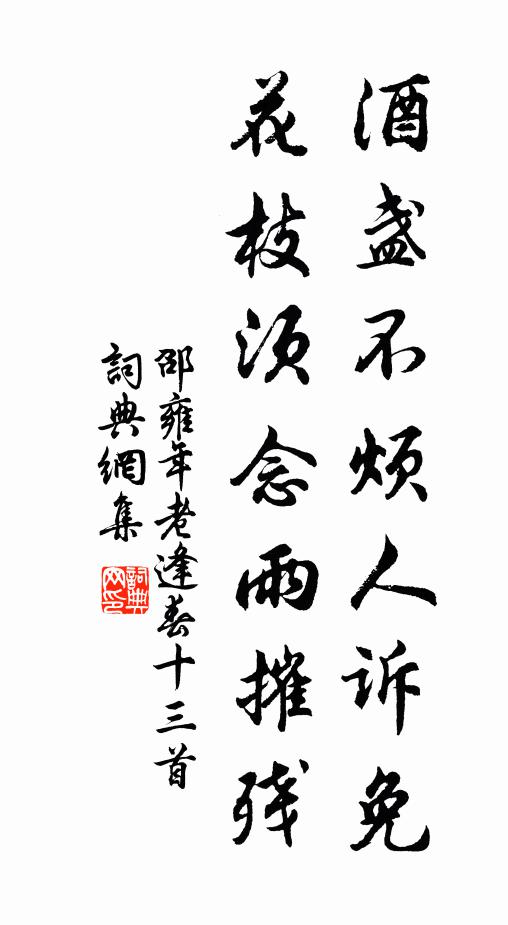 酒盏不烦人诉免
花枝须念雨摧残
邵雍年老逢春十三首
詞典網集
詞典
网印